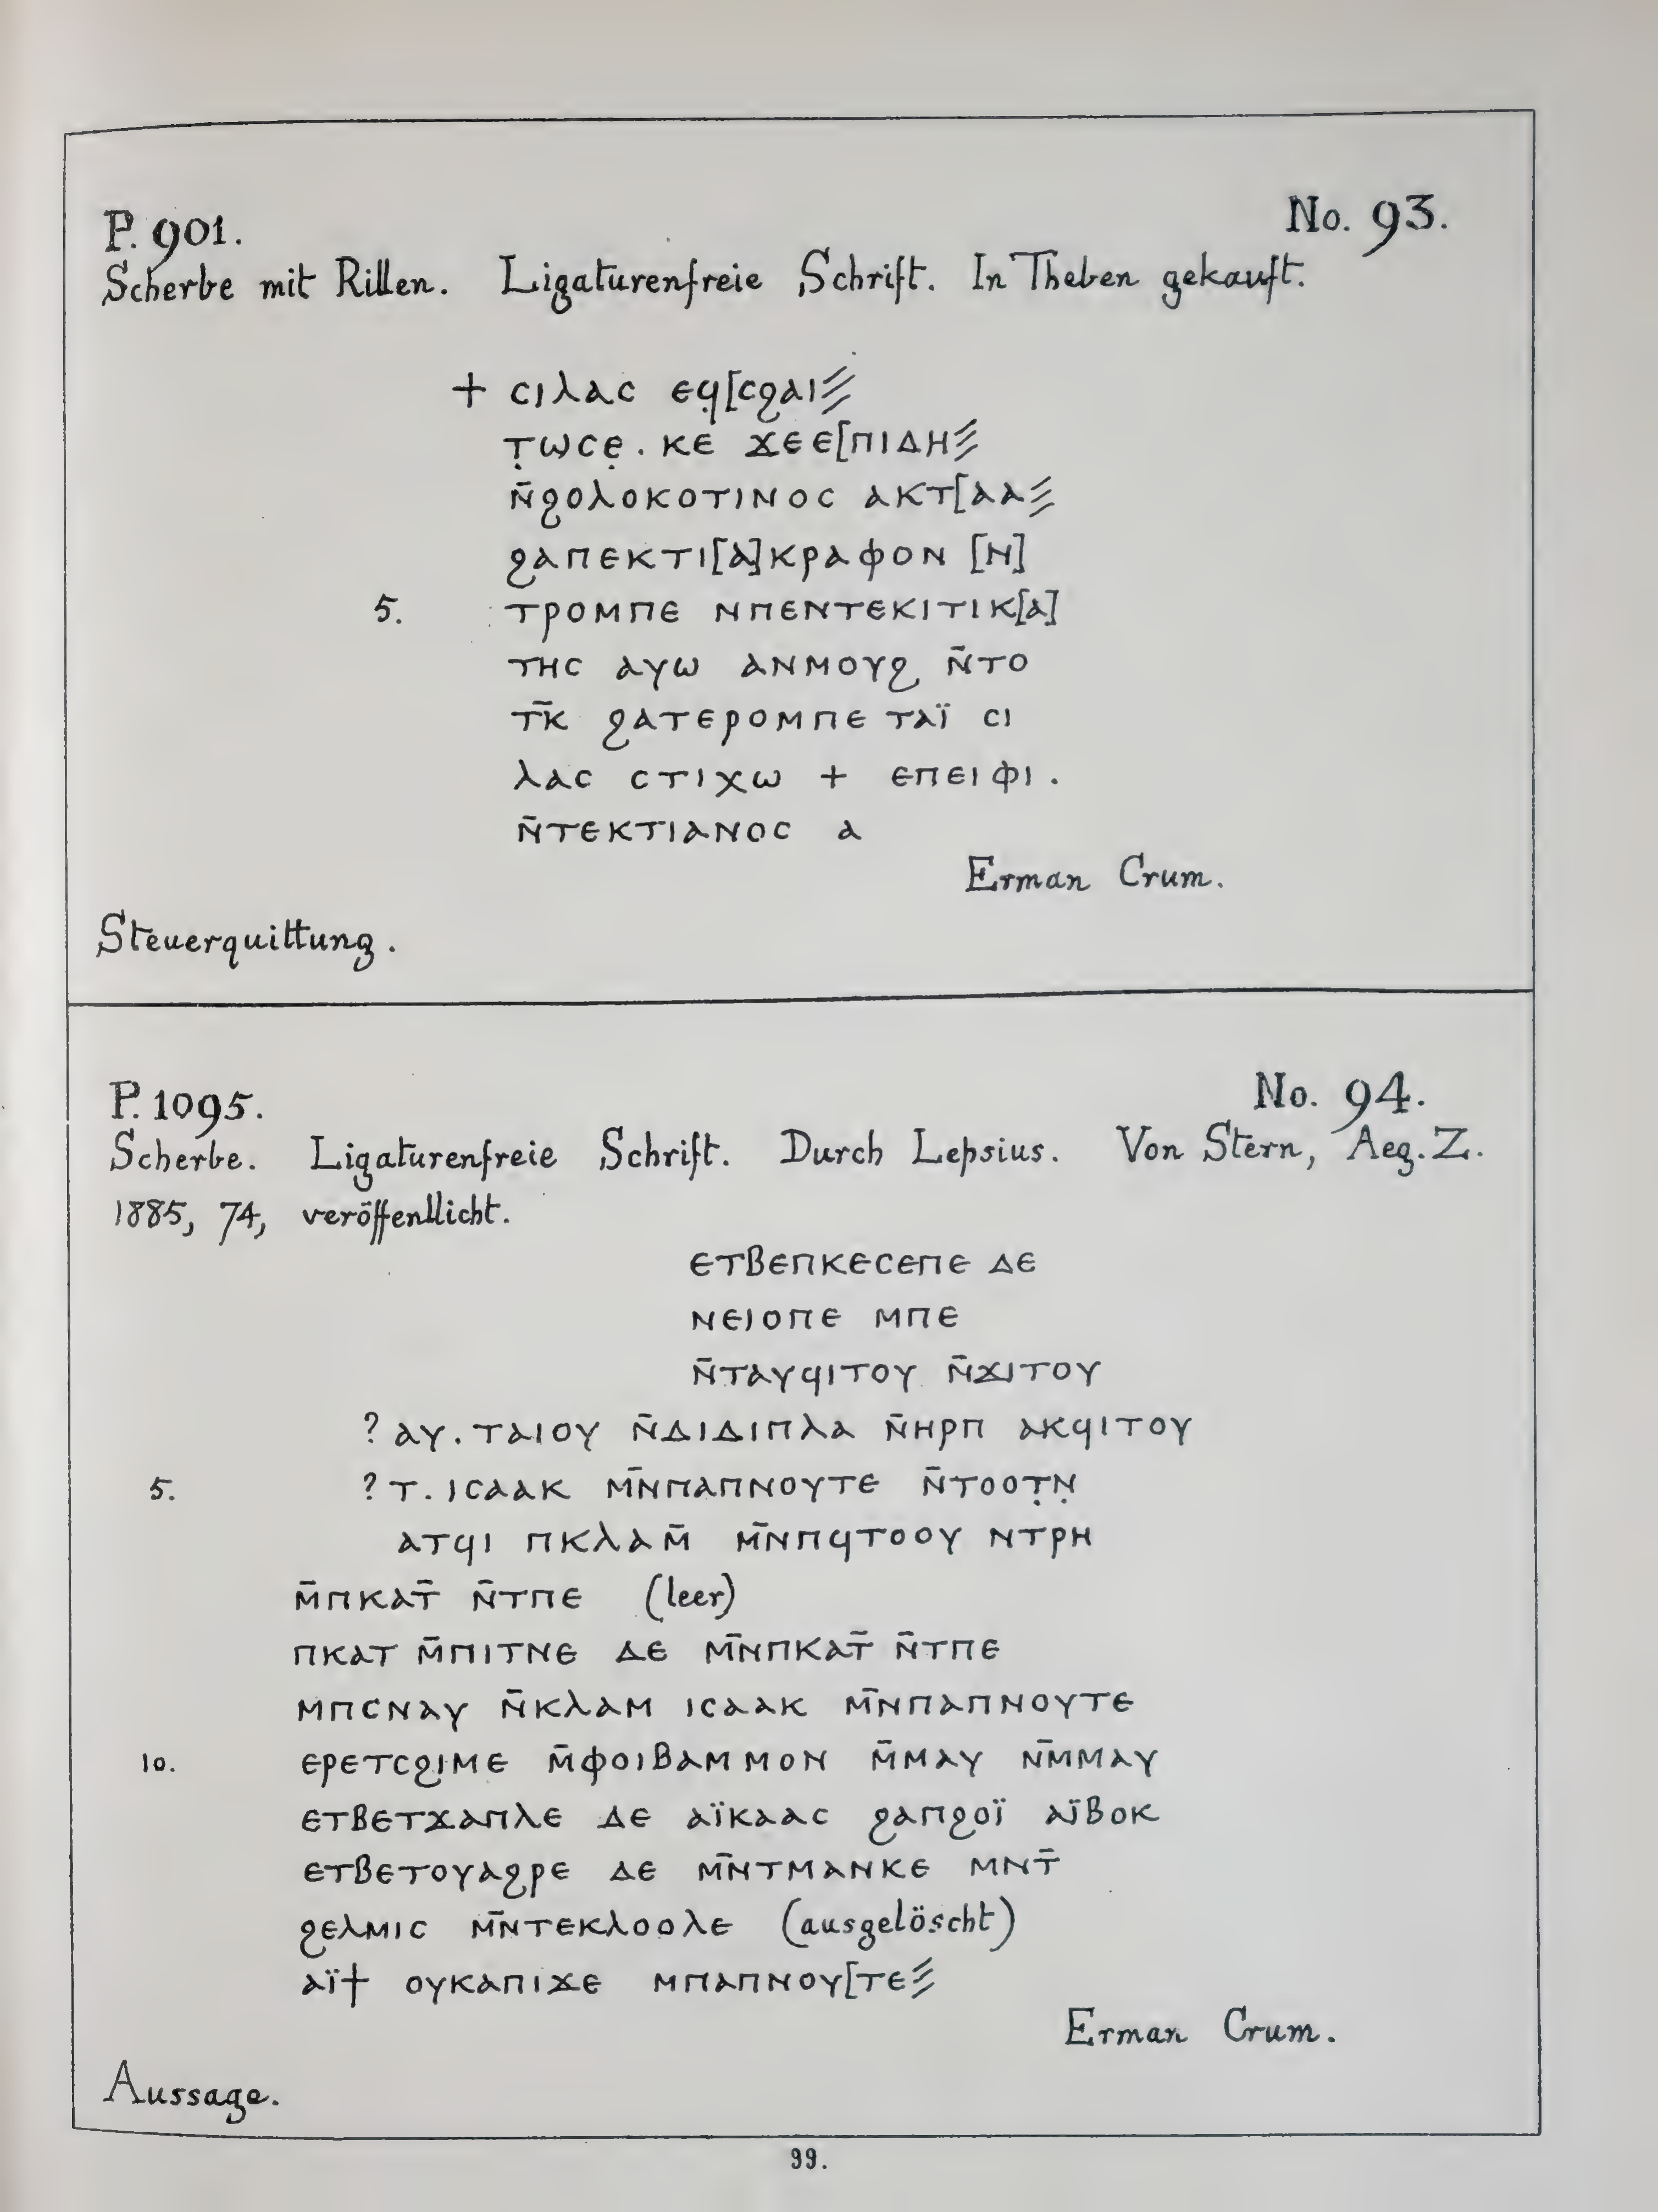 P. 901. No. 93.
Scherbe mit Rillen. Ligaturenfreie Schrift. In Theben gekauft.
+ ⲥⲓⲗⲁⲥ ⲉϥ̣[ⲥϩⲁⲓ⫽
ⲧ̣ⲱⲥⲉ̣ . ⲕⲉ ϫⲉⲉ[ⲡⲓⲇⲏ⫽
ⲛ̄ϩⲟⲗⲟⲕⲟⲧⲓⲛⲟⲥ ⲁⲕⲧ[ⲁⲁ⫽
ϩⲁⲡⲉⲕⲧⲓ[ⲁ]ⲕⲣⲁⲫⲟⲛ [ⲛ]
5. ⲧⲣⲟⲙⲡⲉ ⲛⲡⲉⲛⲧⲉⲕⲓⲧⲓⲕ[ⲁ]
ⲧⲏⲥ ⲁⲩⲱ ⲁⲛⲙⲟⲩϩ ⲛ̄ⲧⲟ
ⲧⲕ̄ ϩⲁⲧⲉⲣⲟⲙⲡⲉ ⲧⲁⲓ̈ ⲥⲓ
ⲗⲁⲥ ⲥⲧⲓⲭⲱ + ⲉⲡⲉⲓⲫⲓ .
ⲛ̄ⲧⲉⲕⲧⲓⲁⲛⲟⲥ ⲁ
Erman Crum.
Steuerquittung.
P. 1095. No. 94.
Scherbe. Ligaturenfreie Schrift. Durch Lepsius. Von Stern, Aeg. Z.
1885, 74, veröffentlicht.
ⲉⲧⲃⲉⲡⲕⲉⲥⲉⲡⲉ ⲇⲉ
ⲛⲉⲓⲟⲡⲉ ⲙⲡⲉ
ⲛ̄ⲧⲁⲩϥⲓⲧⲟⲩ ⲛ̄ϫⲓⲧⲟⲩ
? ⲁⲩ . ⲧⲁⲓⲟⲩ ⲛ̄ⲇⲓⲇⲓⲡⲗⲁ ⲛ̄ⲏⲣⲡ ⲁⲕϥⲓⲧⲟⲩ
5. ? ⲧ . ⲓⲥⲁⲁⲕ ⲙ̄ⲛⲡⲁⲡⲛⲟⲩⲧⲉ ⲛ̄ⲧⲟⲟⲧ̣ⲛ̣
ⲁⲧϥⲓ ⲡⲕⲗⲁⲙ̄ ⲙ̄ⲛⲡϥⲧⲟⲟⲩ ⲛⲧⲣⲏ
ⲙ̄ⲡⲕⲁⲧ̄ ⲛ̄ⲧⲡⲉ (leer)
ⲡⲕⲁⲧ ⲙ̄ⲡⲓⲧⲛⲉ ⲇⲉ ⲙ̄ⲛⲡⲕⲁⲧ̄ ⲛ̄ⲧⲡⲉ
ⲙⲡⲥⲛⲁⲩ ⲛ̄ⲕⲗⲁⲙ ⲓⲥⲁⲁⲕ ⲙ̄ⲛⲡⲁⲡⲛⲟⲩⲧⲉ
10. ⲉⲣⲉⲧⲥϩⲓⲙⲉ ⲙ̄ⲫⲟⲓⲃⲁⲙⲙⲟⲛ ⲙ̄ⲙⲁⲩ ⲛ̄ⲙⲙⲁⲩ
ⲉⲧⲃⲉⲧϫⲁⲡⲗⲉ ⲇⲉ ⲁⲓ̈ⲕⲁⲁⲥ ϩⲁⲡϩⲟⲓ̈ ⲁⲓ̈ⲃⲟⲕ
ⲉⲧⲃⲉⲧⲟⲩⲁϩⲣⲉ ⲇⲉ ⲙ̄ⲛⲧⲙⲁⲛⲕⲉ ⲙⲛⲧ̄
ϩⲉⲗⲙⲓⲥ ⲙ̄ⲛⲧⲉⲕⲗⲟⲟⲗⲉ (ausgelöscht)
ⲁⲓ̈ϯ ⲟⲩⲕⲁⲡⲓϫⲉ ⲙⲡⲁⲡⲛⲟⲩ[ⲧⲉ⫽
Erman Crum.
Aussage.
99.